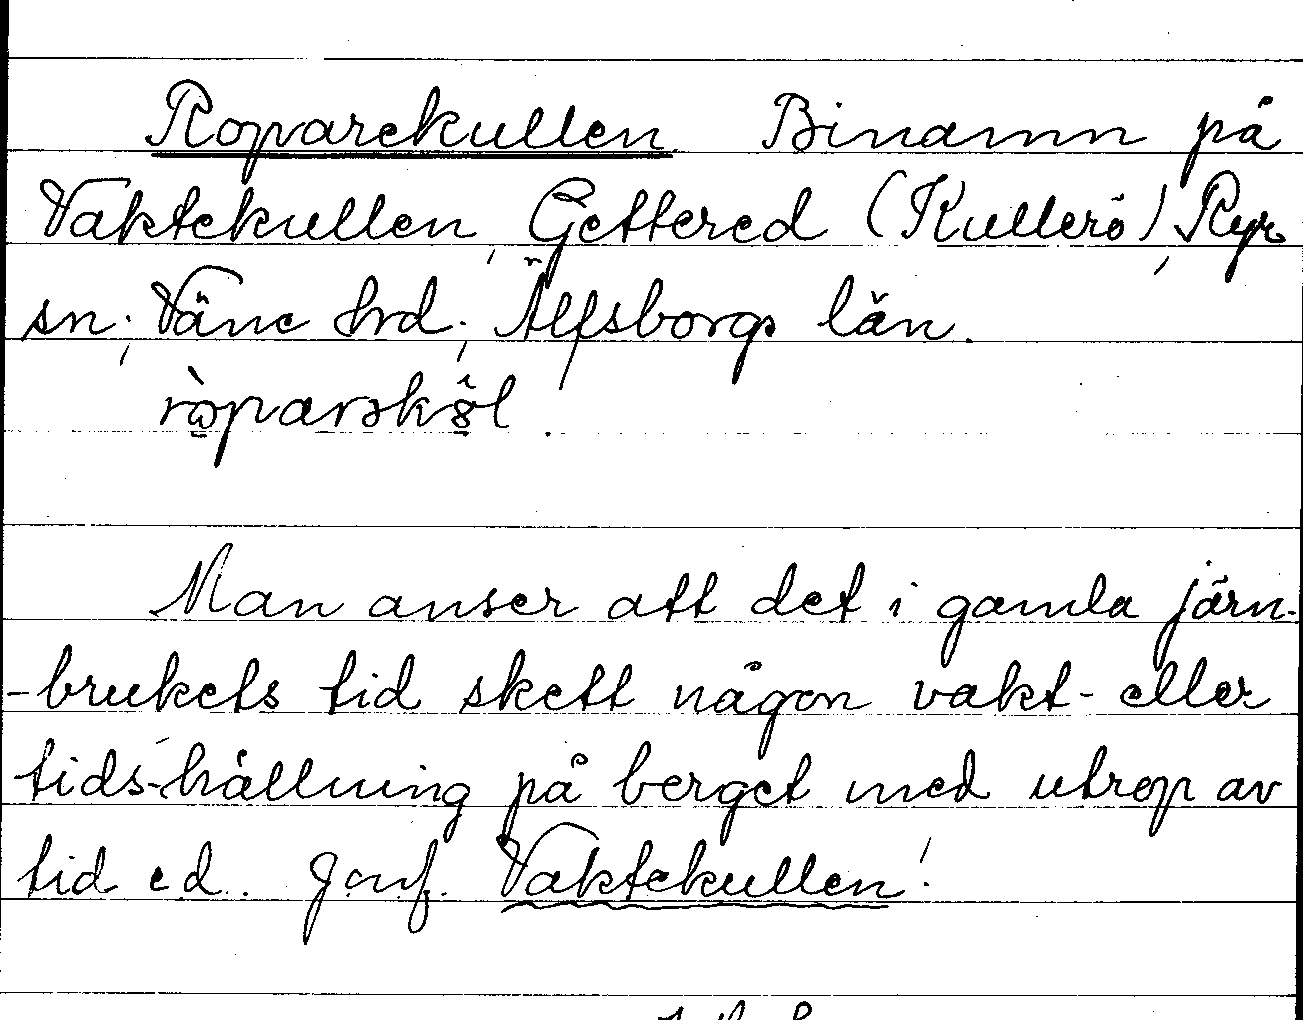 Roparekullen. Binamn på
Vaktekullen, Gettered (Kullerö), Ryr
sn; Väne hrd; Älfsborgs län.
Man anser att det i gamla järn-
-brukets tid skett någon vakt- eller
tids-hållning på berget med utrop av
tid ed. Jmf. Vaktekullen!